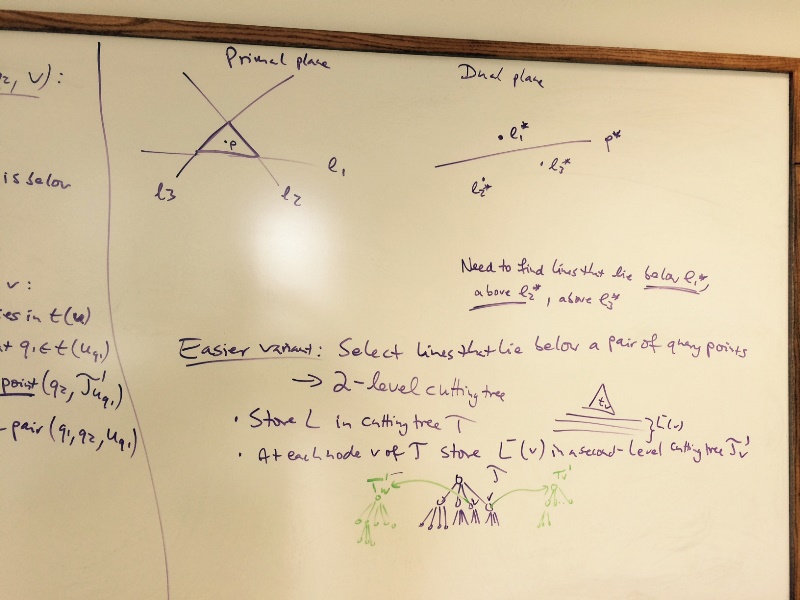 2, v):
is below
v:
ies in t(u)
at q1 ∈ t(uq1)
point (q2, T'uq1)
-pair (q1, q2, uq1)
Primal plane
p
l1
l2
l3
Dual plane
l1*
p*
l3*
l2*
Need to find lines that lie below l1*,
above l2*, above l3*
Easier variant: Select lines that lie below a pair of query points
→ 2-level cutting tree
• Store L in cutting tree T
tv
L⁻(v)
• At each node v of T store L⁻(v) in a second-level cutting tree Tv'
T
v
Tv'